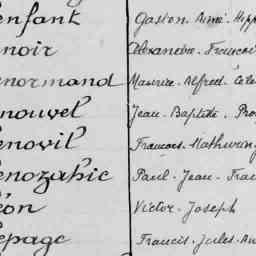 enfant Gaston. Aimé. Hipp
noir Alexandre. Francoi
normand Maurice. Alfred. Céle
nouvel Jean. Baptiste. Pro
enovil François. Mathurin
enozahic Paul. Jean. Fran
éon Victor. Joseph
epage Francis. Jules. Au